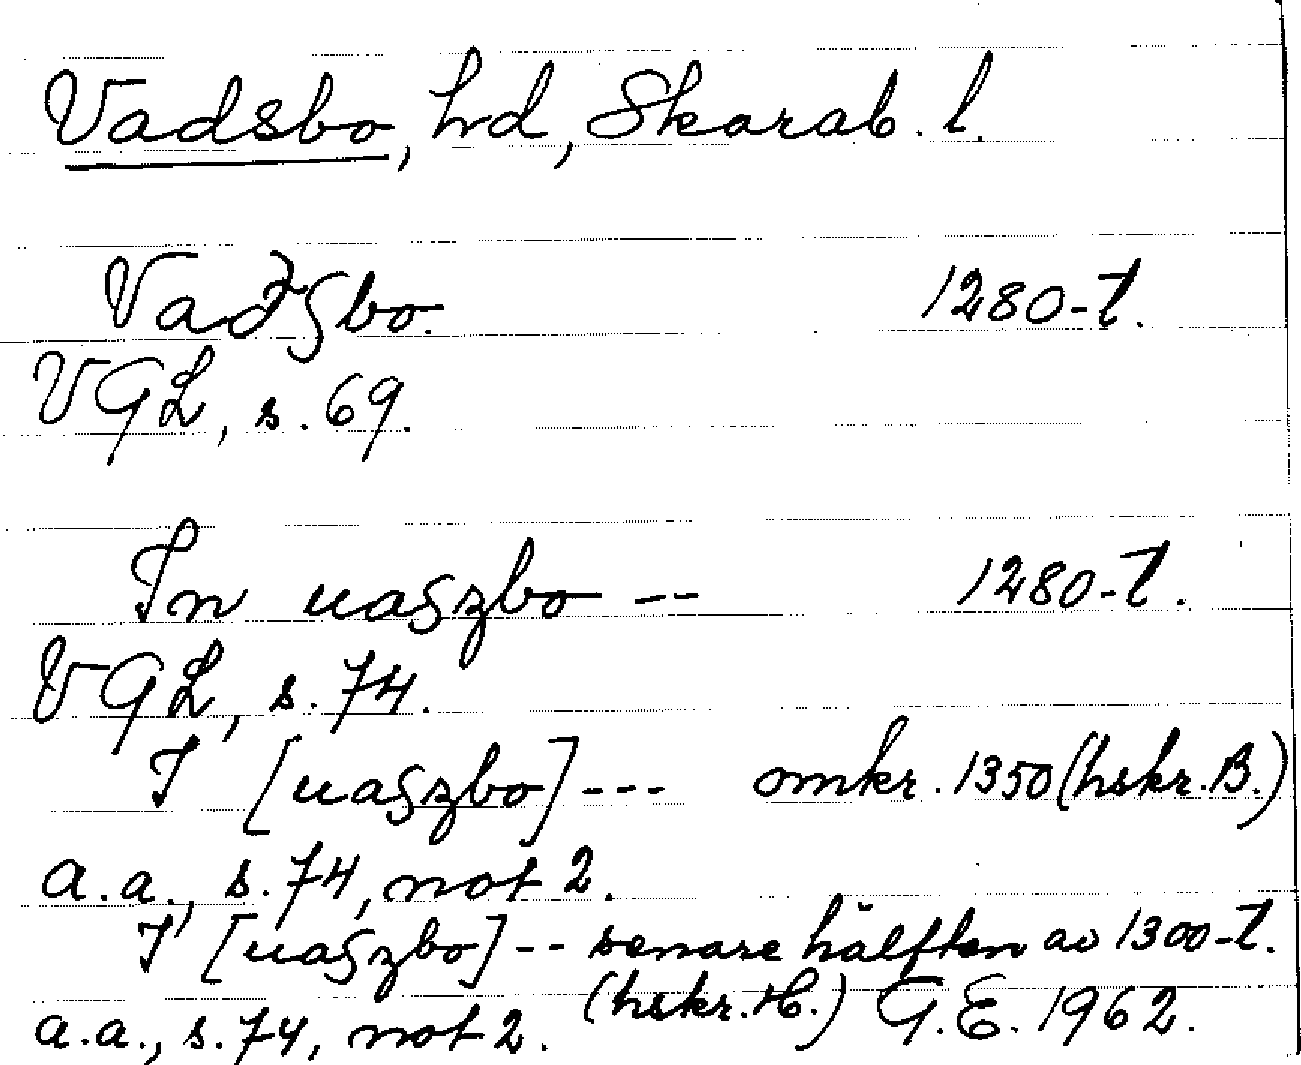 Vadsbo, hd, Skarab. l.
Vaðʒbo. 1280-t.
VGL, s. 69.
In uaʒzbo -- 1280-t.
VGL, s. 74.
I [uaʒzbo] --- omkr. 1350 (hskr. B.)
a.a., s. 74, not 2.
I [uaʒzbo] -- senare hälften av 1300-t.
a.a., s. 74, not 2. (hskr. H.) G.E. 1962.